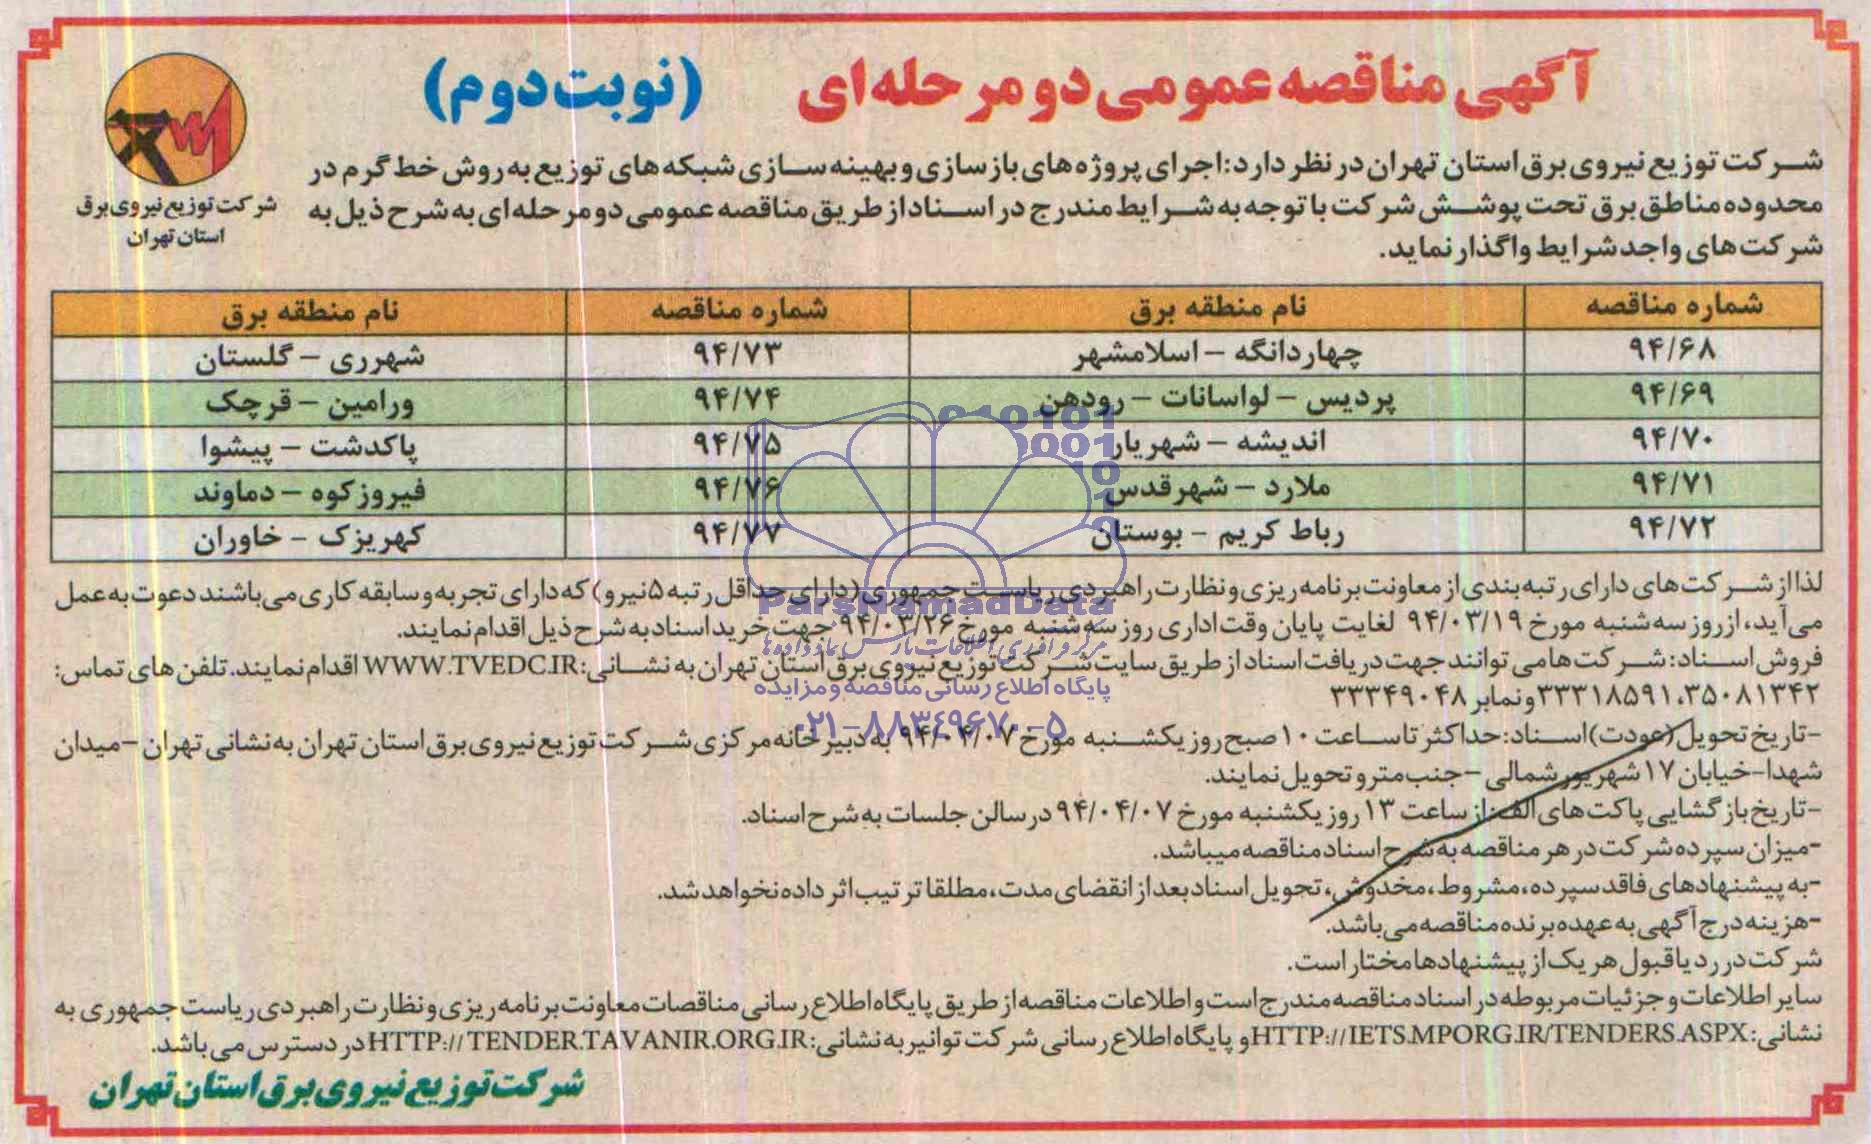 آگهی مناقصه عمومی دو مرحله‌ای (نوبت دوم)
شرکت توزیع نیروی برق
استان تهران
شرکت توزیع نیروی برق استان تهران در نظر دارد: اجرای پروژه های بازسازی و بهینه سازی شبکه های توزیع به روش خط گرم در
محدوده مناطق برق تحت پوشش شرکت با توجه به شرایط مندرج در اسناد از طریق مناقصه عمومی دو مرحله ای به شرح ذیل به
شرکت های واجد شرایط واگذار نماید.
شماره مناقصه نام منطقه برق شماره مناقصه نام منطقه برق
۹۴/۶۸ چهاردانگه – اسلامشهر ۹۴/۷۳ شهرری – گلستان
۹۴/۶۹ پردیس – لواسانات – رودهن ۹۴/۷۴ ورامین – قرچک
۹۴/۷۰ اندیشه – شهریار ۹۴/۷۵ پاکدشت – پیشوا
۹۴/۷۱ ملارد – شهرقدس ۹۴/۷۶ فیروزکوه – دماوند
۹۴/۷۲ رباط کریم – بوستان ۹۴/۷۷ کهریزک – خاوران
لذا از شرکت های دارای رتبه بندی از معاونت برنامه ریزی و نظارت راهبردی ریاست جمهوری (دارای حداقل رتبه ۵ نیرو) که دارای تجربه و سابقه کاری می باشند دعوت به عمل
می آید، از روز سه شنبه مورخ ۹۴/۰۳/۱۹ لغایت پایان وقت اداری روز سه شنبه مورخ ۹۴/۰۳/۲۶ جهت خرید اسناد به شرح ذیل اقدام نمایند.
فروش اسناد: شرکت ها می توانند جهت دریافت اسناد از طریق سایت شرکت توزیع نیروی برق استان تهران به نشانی: WWW.TVEDC.IR اقدام نمایند. تلفن های تماس:
۳۵۰۸۱۳۴۲، ۳۳۳۱۸۵۹۱ و نمابر ۳۳۳۴۹۰۴۸
-تاریخ تحویل (عودت) اسناد: حداکثر تا ساعت ۱۰ صبح روز یکشنبه مورخ ۹۴/۰۴/۰۷ به دبیرخانه مرکزی شرکت توزیع نیروی برق استان تهران به نشانی تهران – میدان
شهدا-خیابان ۱۷ شهریور شمالی – جنب مترو تحویل نمایند.
-تاریخ بازگشایی پاکت های الف: از ساعت ۱۳ روز یکشنبه مورخ ۹۴/۰۴/۰۷ در سالن جلسات به شرح اسناد.
-میزان سپرده شرکت در هر مناقصه به شرح اسناد مناقصه میباشد.
-به پیشنهادهای فاقد سپرده، مشروط، مخدوش، تحویل اسناد بعد از انقضای مدت، مطلقا ترتیب اثر داده نخواهد شد.
-هزینه درج آگهی به عهده برنده مناقصه می باشد.
شرکت در رد یا قبول هر یک از پیشنهادها مختار است.
سایر اطلاعات و جزئیات مربوطه در اسناد مناقصه مندرج است و اطلاعات مناقصه از طریق پایگاه اطلاع رسانی مناقصات معاونت برنامه ریزی و نظارت راهبردی ریاست جمهوری به
نشانی: HTTP://IETS.MPORG.IR/TENDERS.ASPX و پایگاه اطلاع رسانی شرکت توانیر به نشانی: HTTP://TENDER.TAVANIR.ORG.IR در دسترس می باشد.
شرکت توزیع نیروی برق استان تهران
ParsNamadData
مرکز فرآوری اطلاعات پارس نماد داده ها
پایگاه اطلاع رسانی مناقصه و مزایده
۰۲۱-۸۸۳۴۹۶۷۰-۵